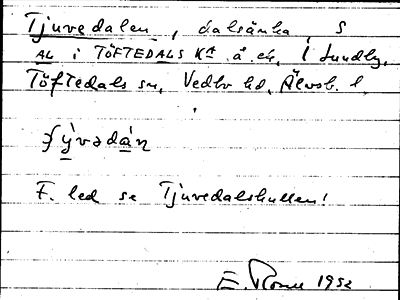 Tjuvedalen, dalsänka, S
AL i TÖFTEDALS KA å. ek. i Lundby,
Töftedals sn, Vedbo hd, Älvsb. l.
F. led se Tjuvedalskullen!
E. 1952